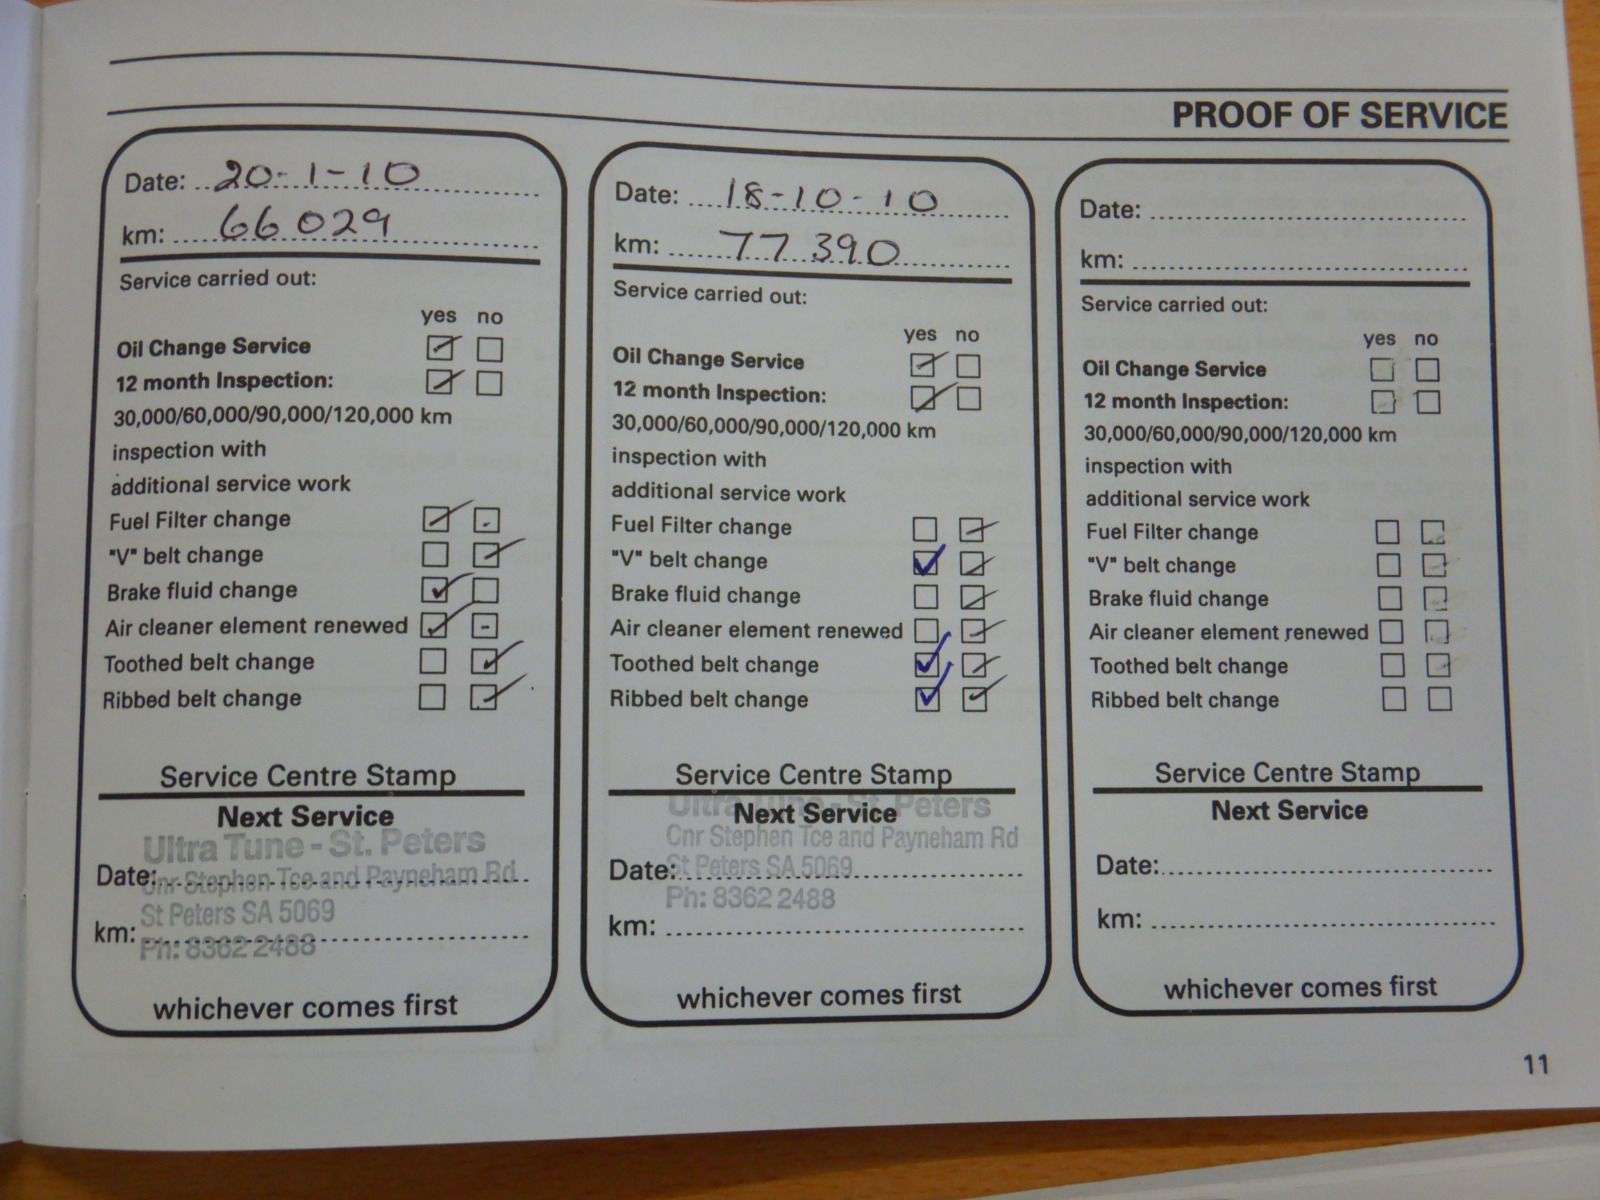 PROOF OF SERVICE
Date: 20-1-10
km: 66029
Service carried out:
yes no
Oil Change Service
12 month Inspection:
30,000/60,000/90,000/120,000 km
inspection with
additional service work
Fuel Filter change
"V" belt change
Brake fluid change
Air cleaner element renewed
Toothed belt change
Ribbed belt change
Service Centre Stamp
Next Service
Ultra Tune - St. Peters
Date:
Cnr Stephen Tce and Payneham Rd
St Peters SA 5069
km:
Ph: 8362 2488
whichever comes first
Date: 18-10-10
km: 77390
Service carried out:
yes no
Oil Change Service
12 month Inspection:
30,000/60,000/90,000/120,000 km
inspection with
additional service work
Fuel Filter change
"V" belt change
Brake fluid change
Air cleaner element renewed
Toothed belt change
Ribbed belt change
Service Centre Stamp
Ultra Tune - St. Peters
Next Service
Cnr Stephen Tce and Payneham Rd
St Peters SA 5069
Date:
Ph: 8362 2488
km:
whichever comes first
Date:
km:
Service carried out:
yes no
Oil Change Service
12 month Inspection:
30,000/60,000/90,000/120,000 km
inspection with
additional service work
Fuel Filter change
"V" belt change
Brake fluid change
Air cleaner element renewed
Toothed belt change
Ribbed belt change
Service Centre Stamp
Next Service
Date:
km:
whichever comes first
11